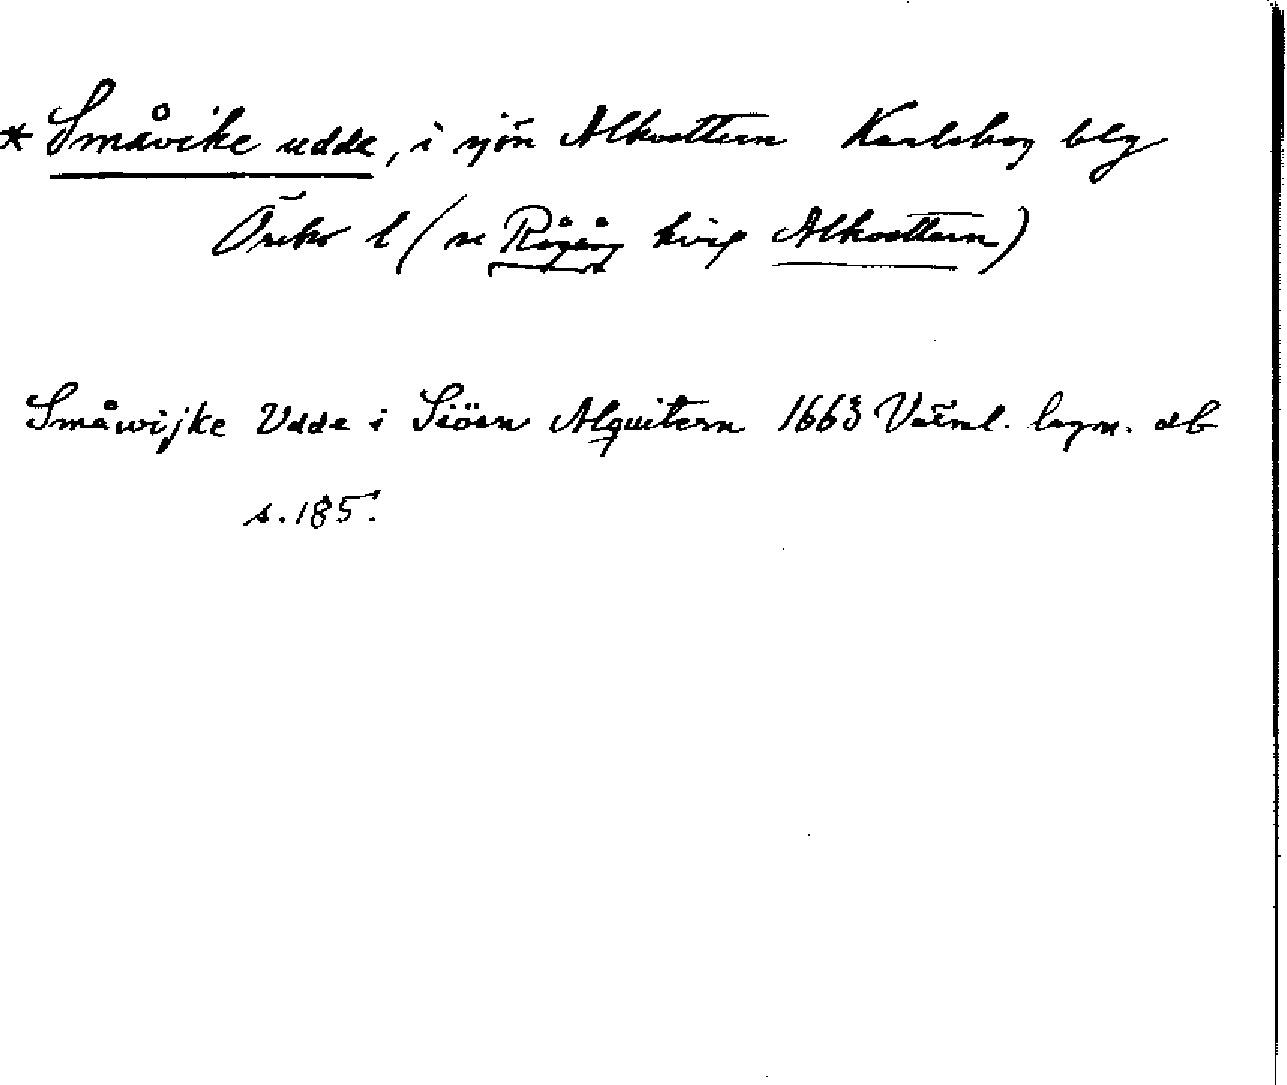 * Småvike udde, i sjön Alkvettern Karlskog blg
Örebr l (se Rågång kring Alkvettern)
Småwijke Udde i Siöen Alquitern 1663 Värml. lagm. db
s. 185.